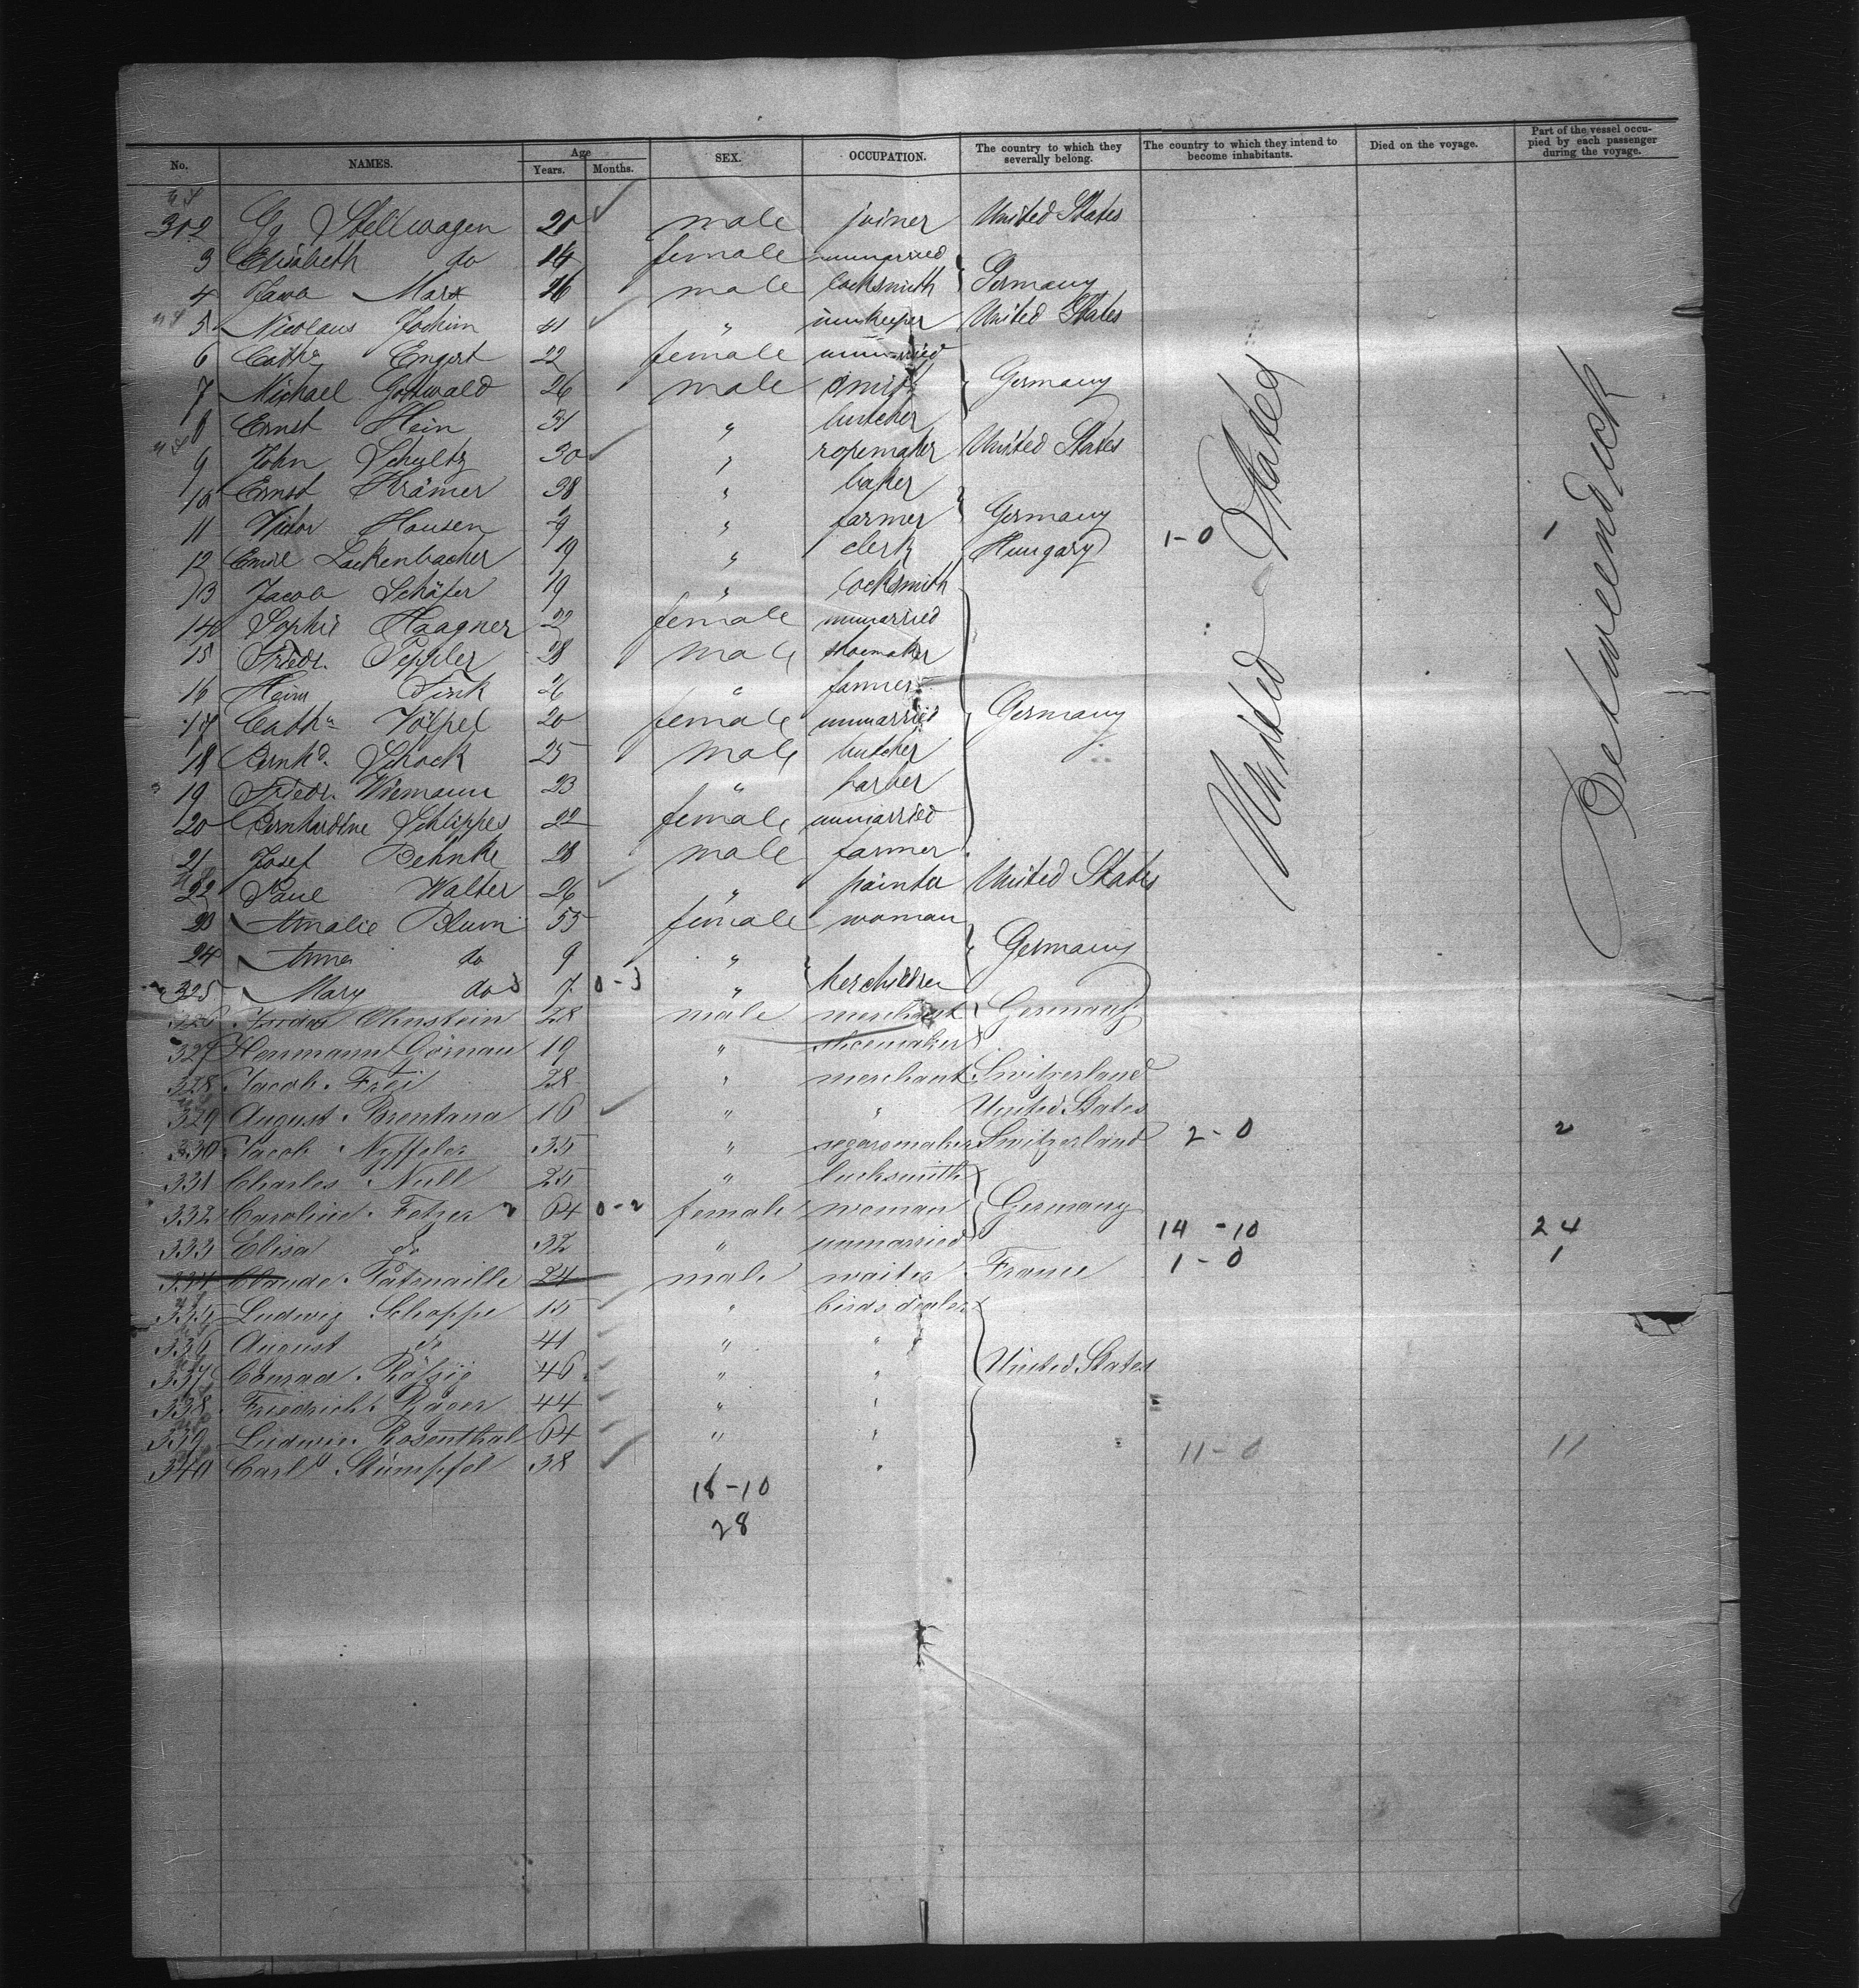 No. NAMES. Age Years. Months. SEX. OCCUPATION. The country to which they severally belong. The country to which they intend to become inhabitants. Died on the voyage. Part of the vessel occupied by each passenger during the voyage.
302 Gg Stellwagen 20 male joiner United States
3 Elisabeth do 14 female unmarried
4 Jacob Marx 26 male locksmith Germany
5 Nicolaus Jochim 41 " innkeeper United States
6 Cathe Engert 22 female unmarried
7 Michael Gottwald 26 male smith Germany
8 Ernst Hein 31 " butcher
9 John Schultz 30 " ropemaker United States
10 Ernst Krämer 38 " baker
11 Victor Hansen " farmer Germany
12 Emil Lackenbacher 19 " clerk Hungary 1-0 1
13 Jacob Schäfer 19 " locksmith
14 Sophie Haagner 22 female unmarried
15 Friedr. Teppler 28 male shoemaker
16 Heinr Fink 26 " farmer
17 Catha Völpel 20 female unmarried Germany
18 Bernhd. Schock 25 male butcher
19 Friedr. Wiemann 23 " barber
20 Bernhardine Schlippes 22 female unmarried
21 Josef Behnke 28 male farmer
22 Paul Walter 26 " painter United States
23 Amalie Blum 55 female woman
24 Anna do 9 " Germany
325 Mary do 3 7 0-3 " her children
326 Ohnstein 28 male merchant Germany
327 Herrmann Görnau 19 " shoemaker
328 Jacob Frei 28 " merchant Switzerland
329 August Brentana 16 " " United States
330 Jacob Nyffeler 35 " segaremaker Switzerland 2-0 2
331 Charles Null 25 " locksmith
332 Caroline Fetzer 2 64 0-2 female woman Germany
333 Elisa do 32 " unmarried 14-10 24
334 Claude Patrnaille 24 male waiter France 1-0 1
335 Ludwig Schoppe 15 " birds dealer
336 August do 41 " "
337 Conrad 46 " " United States
338 Friedrich 44 " "
339 Ludwig Rosenthal 64 " "
340 Carl Stümpfel 38 11-0 11
18-10
28
United States
Betweendeck